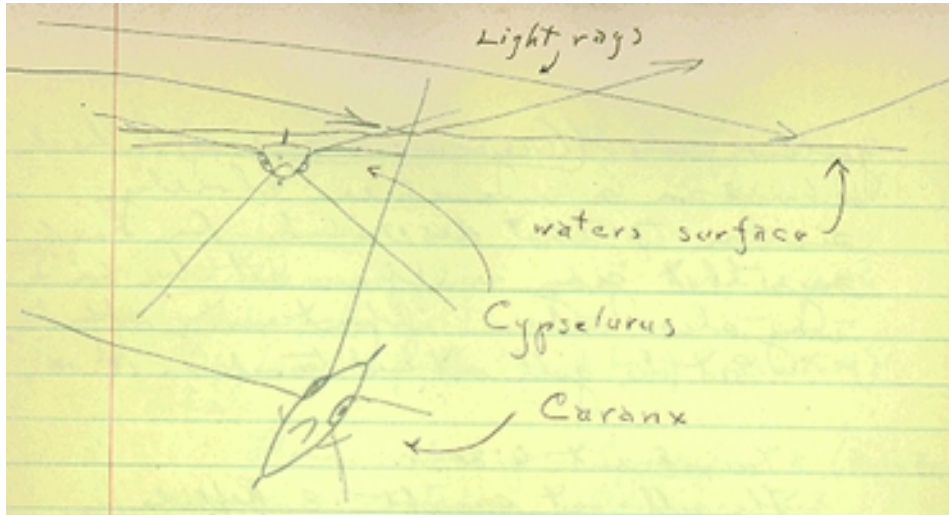 Light rays
waters surface
Cypselurus
Caranx